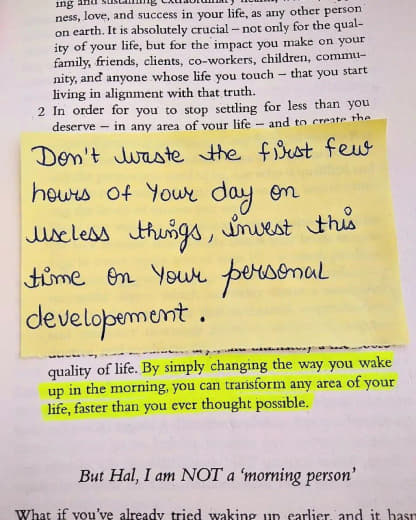 ing and sustaining extraordinary
ness, love, and success in your life, as any other person
on earth. It is absolutely crucial – not only for the qual-
ity of your life, but for the impact you make on your
family, friends, clients, co-workers, children, commu-
nity, and anyone whose life you touch – that you start
living in alignment with that truth.
2 In order for you to stop settling for less than you
deserve – in any area of your life – and to create the
Don't waste the first few
hours of your day on
useless things, invest this
time on your personal
developement.
quality of life. By simply changing the way you wake
up in the morning, you can transform any area of your
life, faster than you ever thought possible.
But Hal, I am NOT a 'morning person'
What if you've already tried waking up earlier, and it hasn